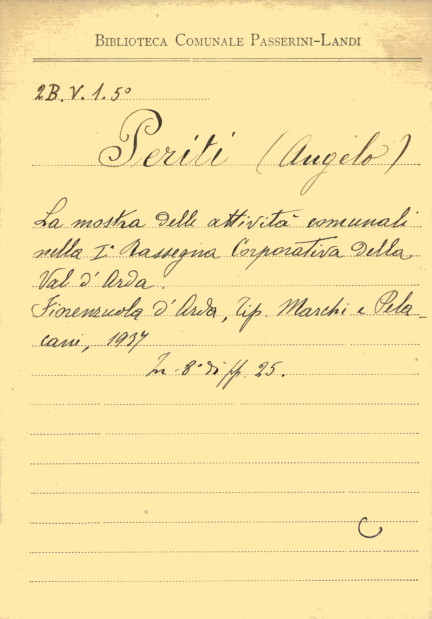 BIBLIOTECA COMUNALE PASSERINI-LANDI
2B.V.1.5º
Periti (Angelo)
La mostra delle attività comunali
nella Iª Rassegna Corporativa della
Val d'Arda.
Fiorenzuola d'Arda, Tip. Marchi e Pela-
cani, 1937
In-8º di pp. 25.
C